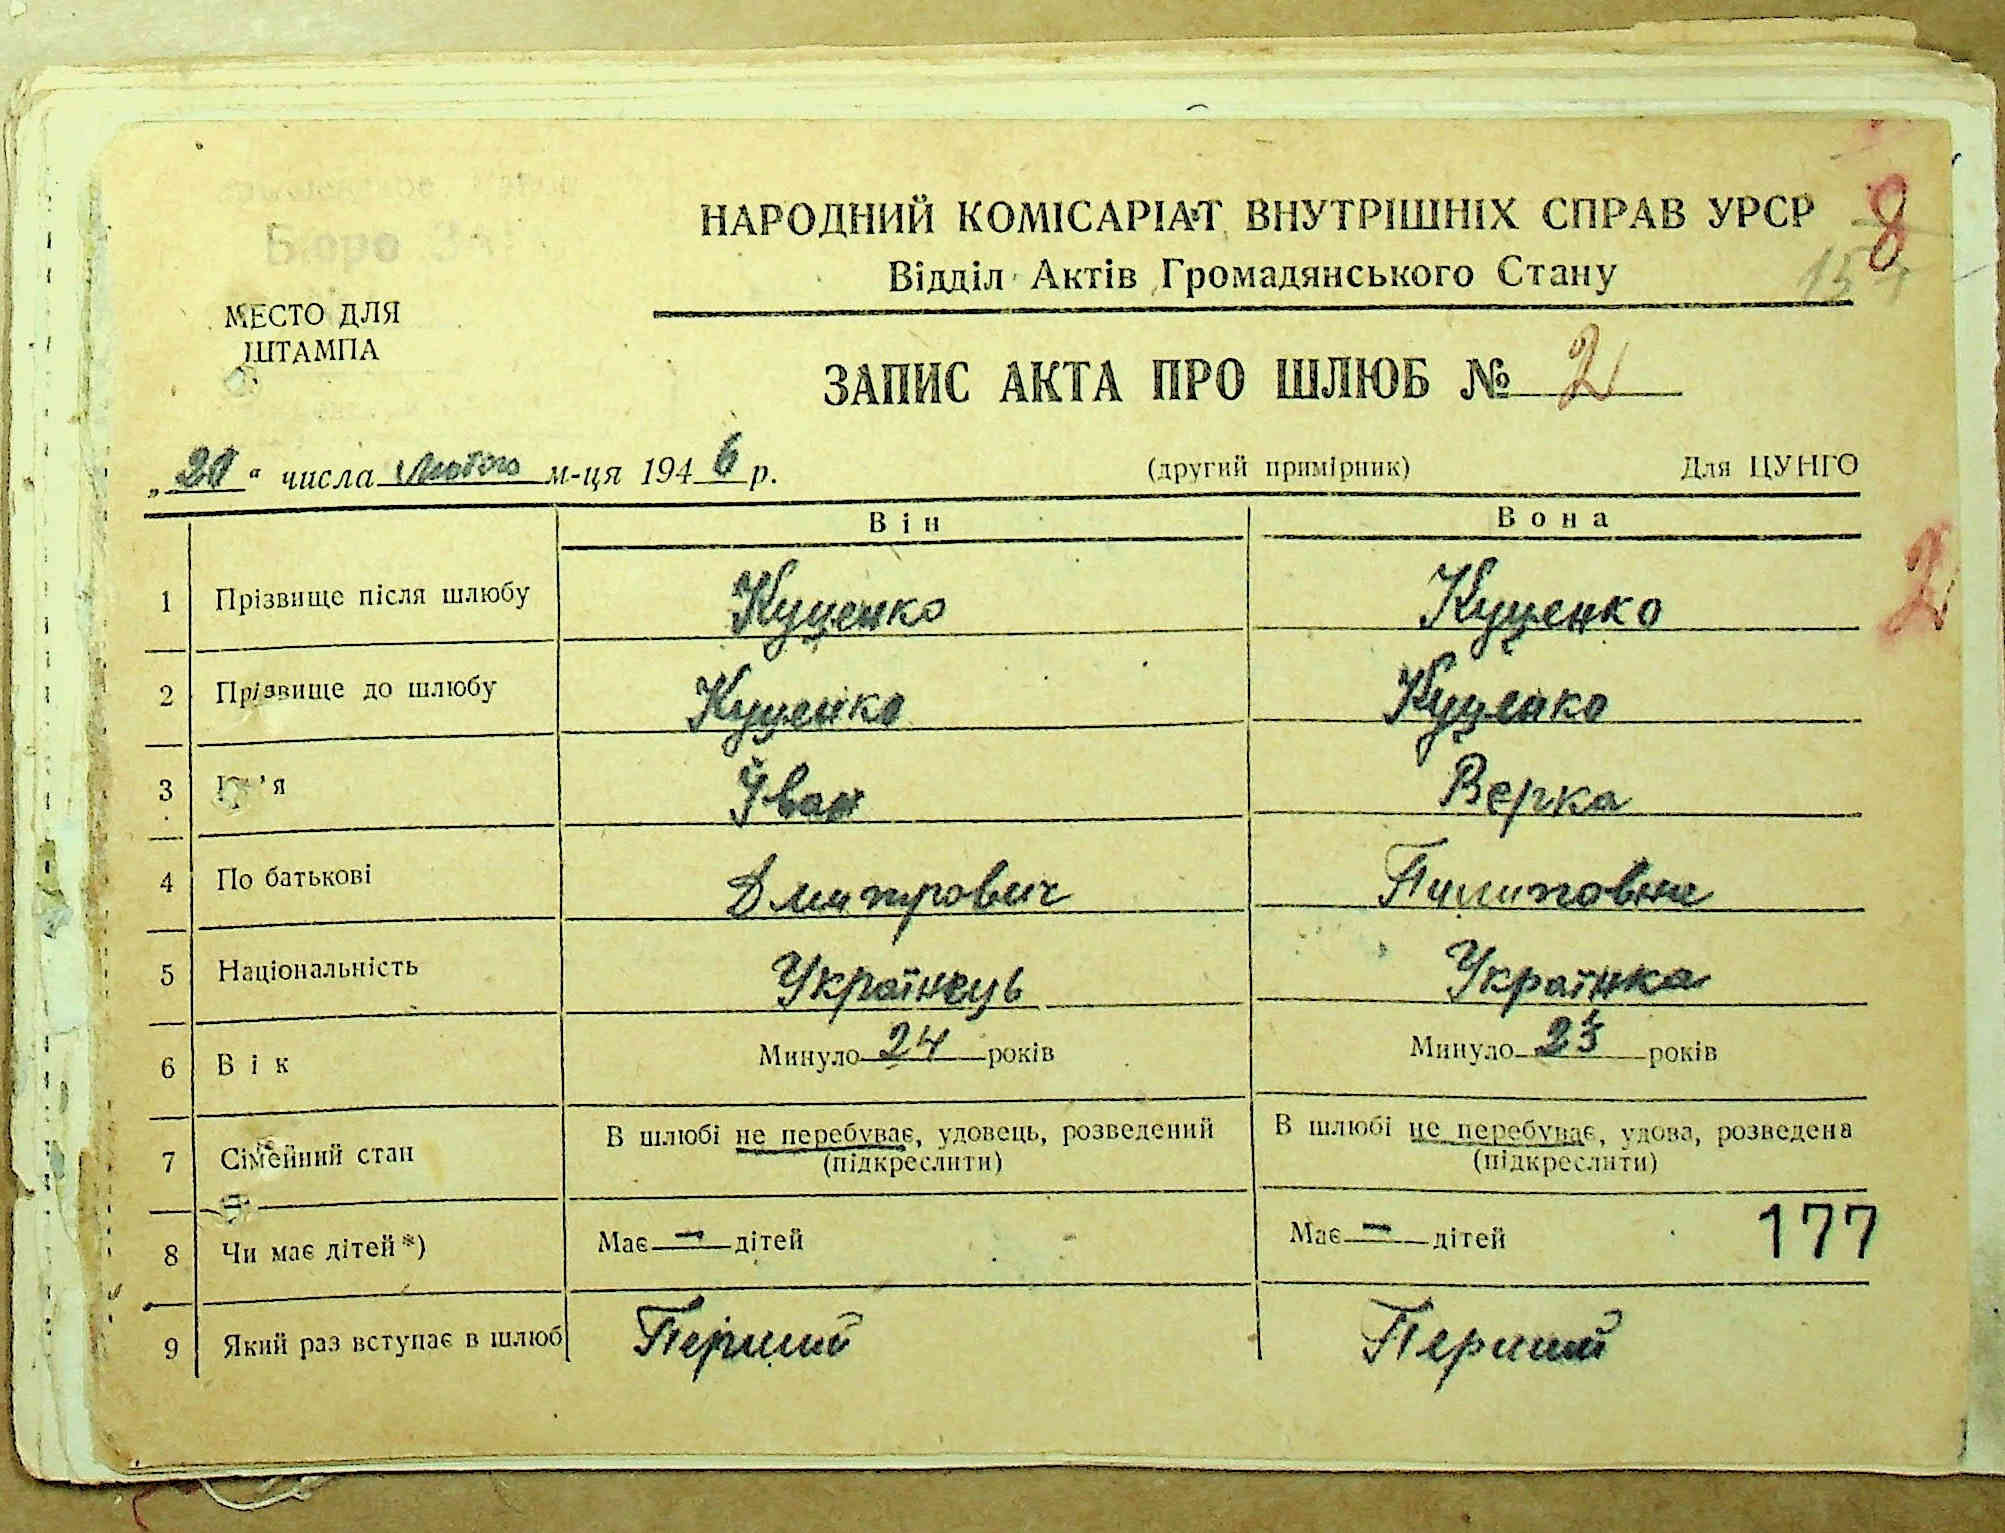 Бюро
8
НАРОДНИЙ КОМІСАРІАТ ВНУТРІШНІХ СПРАВ УРСР
Відділ Актів Громадянського Стану
МЕСТО ДЛЯ
ШТАМПА
ЗАПИС АКТА ПРО ШЛЮБ № 2
„20“ числа Лютого м-ця 1946 р. (другий примірник) Для ЦУНГО
Він Вона
2
1 Прізвище після шлюбу Куценко Куценко
2 Прізвище до шлюбу Куценко Куценко
3 Ім'я Іван Верка
4 По батькові Дмитрович Пилиповна
5 Національність Українець Українка
6 Вік Минуло 24 років Минуло 23 років
7 Сімейний стан В шлюбі не перебуває, удовець, розведений В шлюбі не перебуває, удова, розведена
(підкреслити) (підкреслити)
8 Чи має дітей*) Має — дітей Має — дітей 177
9 Який раз вступає в шлюб Перший Перший